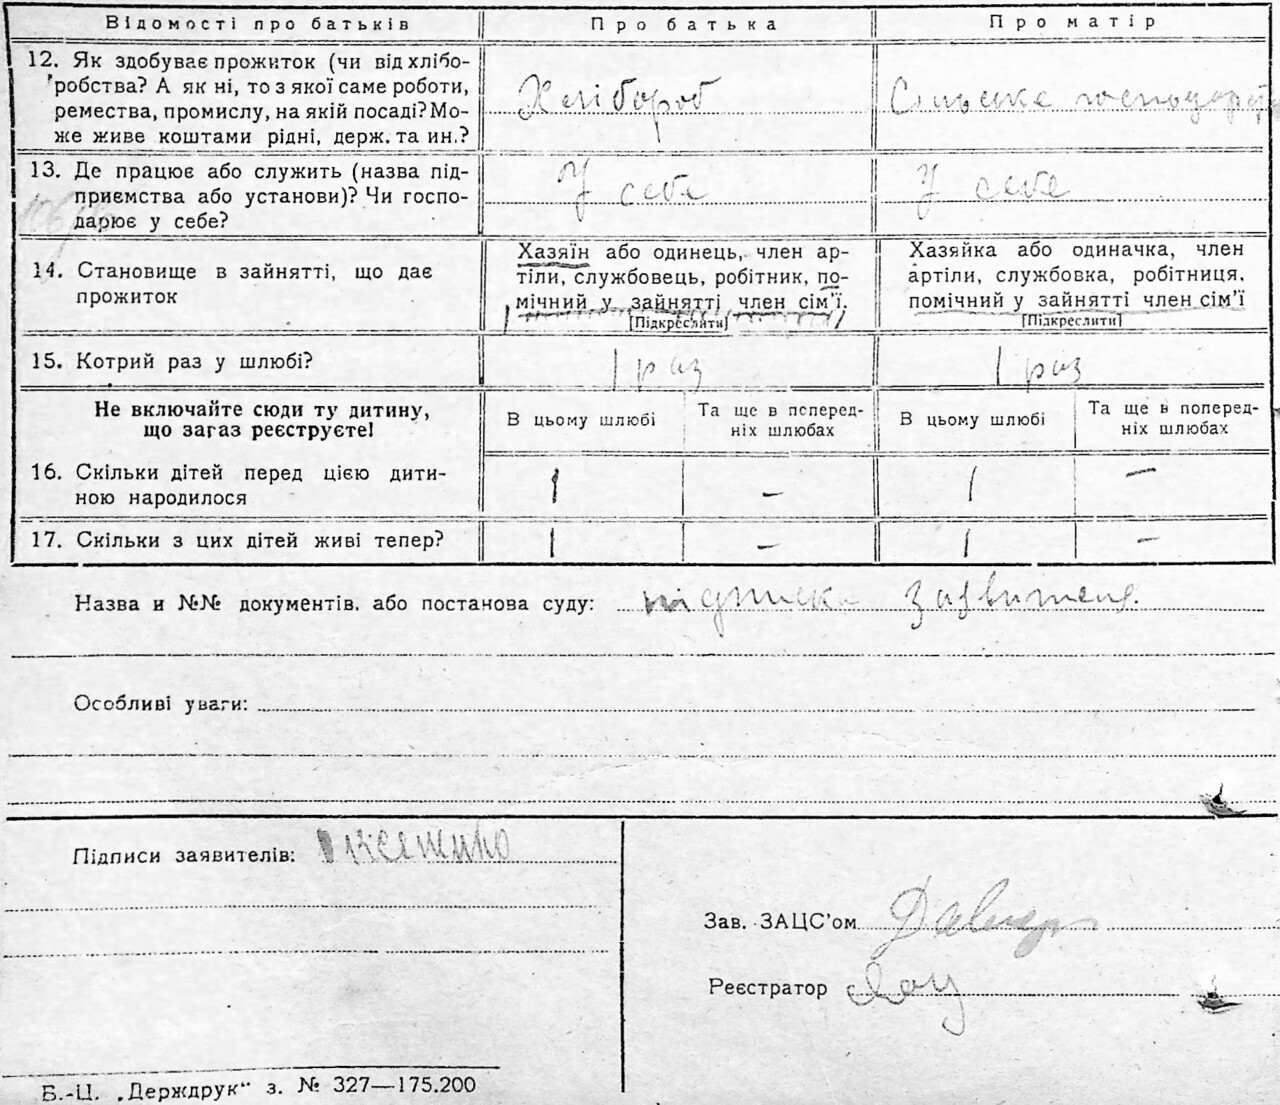 Відомості про батьків Про батька Про матір
12. Як здобуває прожиток (чи від хлібо-
робства? А як ні, то з якої саме роботи,
ремества, промислу, на якій посаді? Мо-
же живе коштами рідні, держ. та ин.?
Хлібороб
Сільське господар
13. Де працює або служить (назва під-
приємства або установи)? Чи госпо-
дарює у себе?
У себе
У себе
14. Становище в зайнятті, що дає
прожиток
Хазяїн або одинець, член ар-
тіли, службовець, робітник, по-
мічний у зайнятті член сім’ї.
[Підкреслити]
Хазяйка або одиначка, член
артіли, службовка, робітниця,
помічний у зайнятті член сім’ї
[Підкреслити]
15. Котрий раз у шлюбі?
1 раз
1 раз
Не включайте сюди ту дитину,
що загаз реєструєте!
В цьому шлюбі
Та ще в поперед-
ніх шлюбах
В цьому шлюбі
Та ще в поперед-
ніх шлюбах
16. Скільки дітей перед цією дити-
ною народилося
1 – 1 –
17. Скільки з цих дітей живі тепер?
1 – 1 –
Назва и №№ документів. або постанова суду: підписка заявителя.
Особливі уваги:
Підписи заявителів:
Зав. ЗАЦС’ом
Реєстратор
Б.-Ц. „Держдрук“ з. № 327—175.200